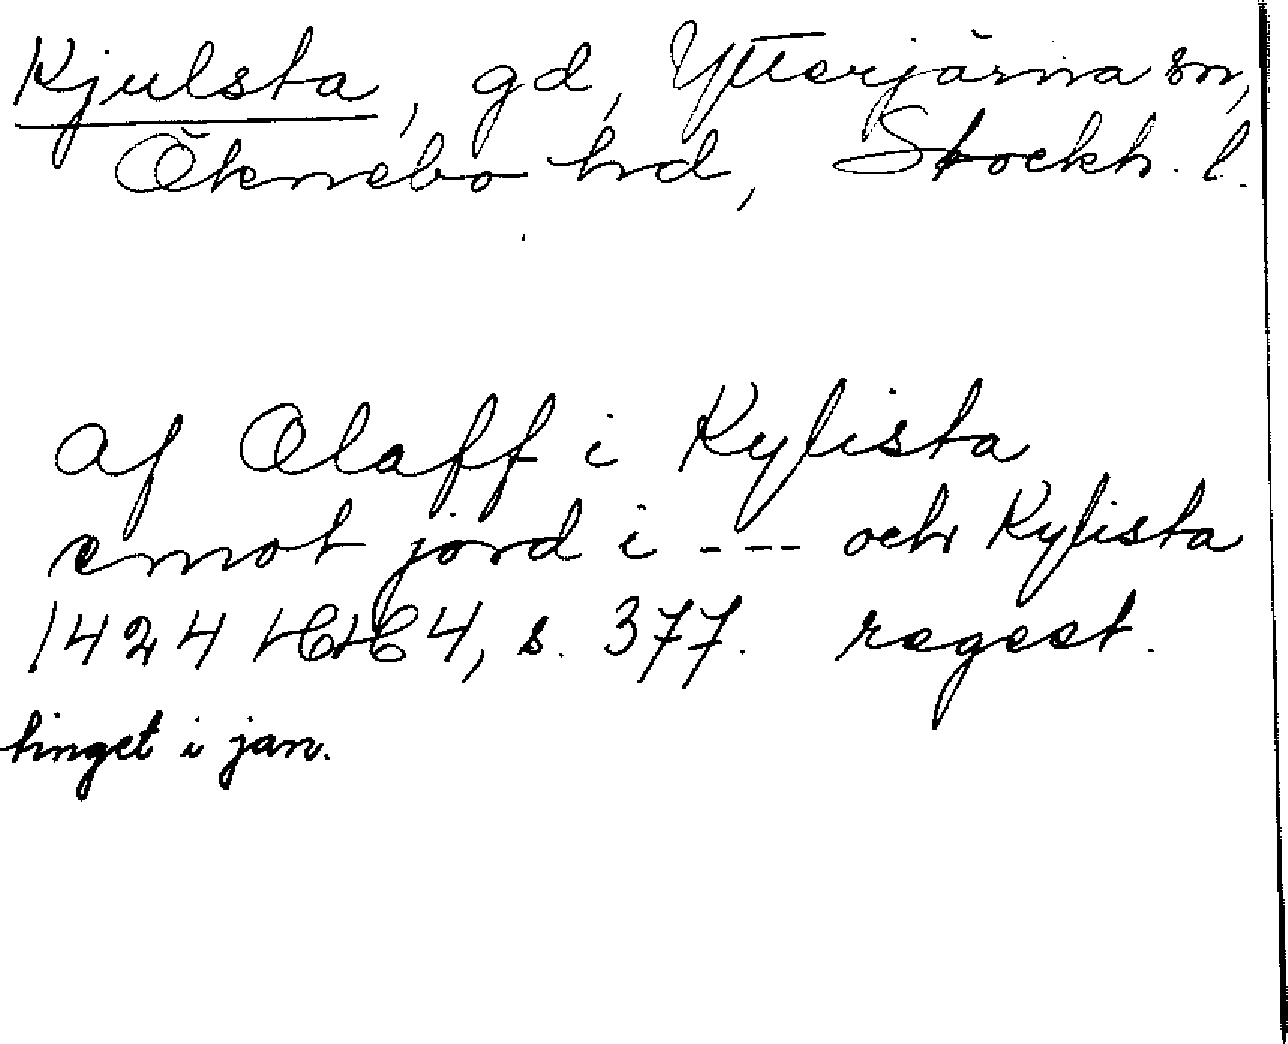 Kjulsta, gd, Ytterjärna sn,
Öknebo hd, Stockh. l.
af Olaff i Kylista
emot jord i --- och Kylista
1424 HH 4, s. 377. regest.
tinget i jan.